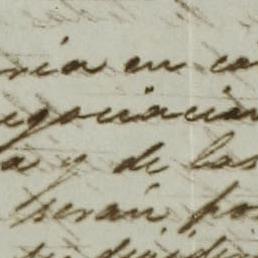 ria en co
egociacion
a y de las
serán pos